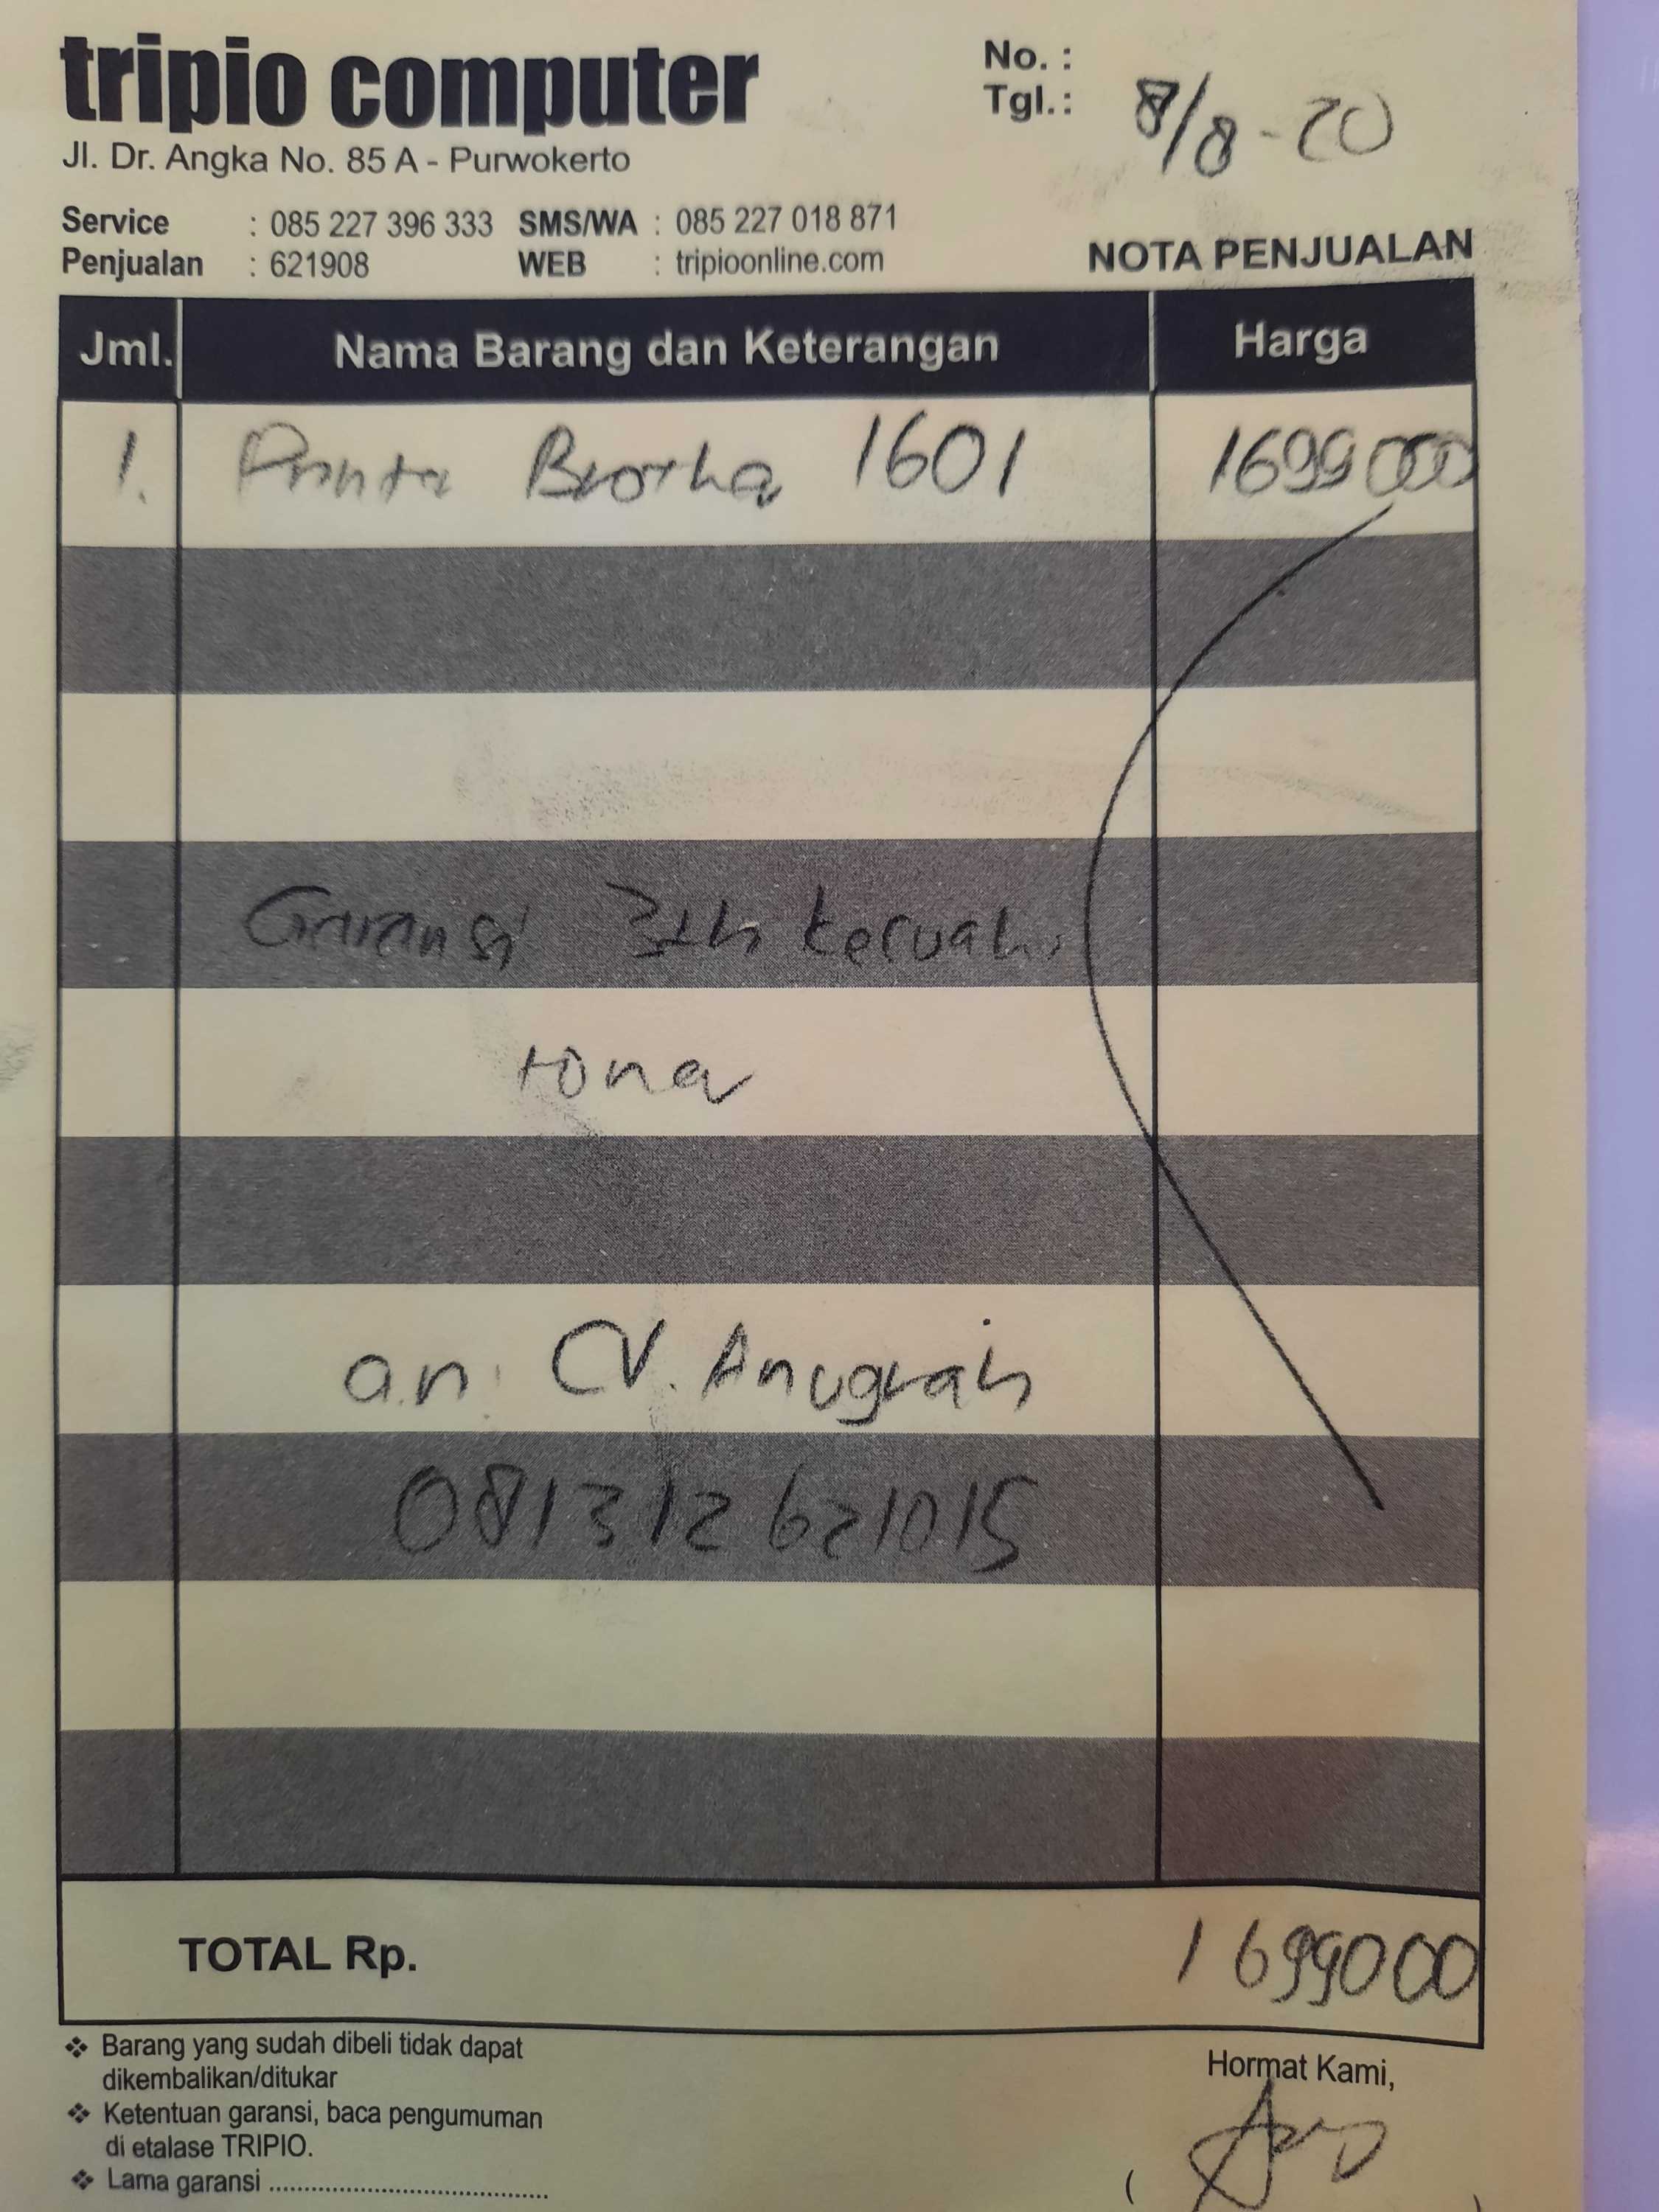 tripio computer
Jl. Dr. Angka No. 85 A - Purwokerto
No. :
Tgl. : 8/8-20
Service : 085 227 396 333 SMS/WA : 085 227 018 871
Penjualan : 621908 WEB : tripioonline.com
NOTA PENJUALAN
Jml. Nama Barang dan Keterangan Harga
1. Printer Brother 1601 1699000
Garansi 3th kecuali
toner
a.n. CV. Anugrah
081312621015
TOTAL Rp. 1699000
❖ Barang yang sudah dibeli tidak dapat
dikembalikan/ditukar
❖ Ketentuan garansi, baca pengumuman
di etalase TRIPIO.
❖ Lama garansi ........................................
Hormat Kami,
( )